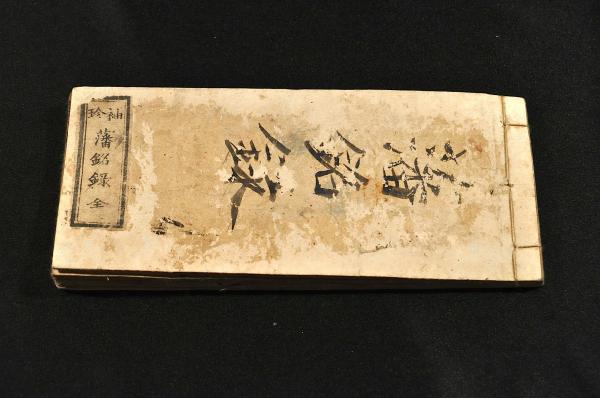 袖珍
藩銘録 全
藩銘録